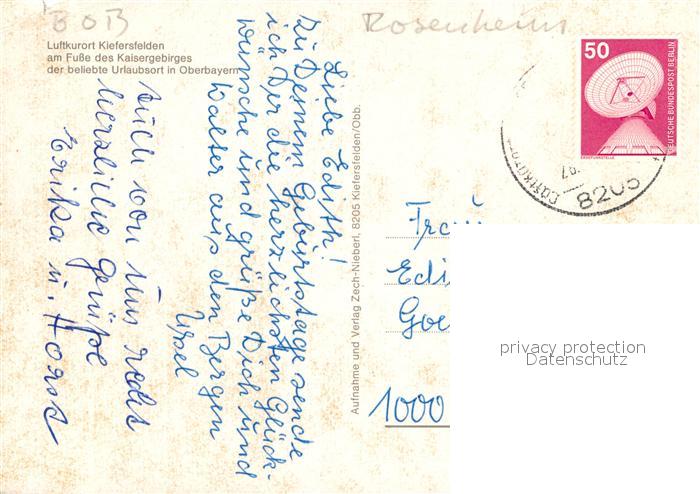 BOB
Rosenheim
Luftkurort Kiefersfelden
am Fuße des Kaisergebirges
der beliebte Urlaubsort in Oberbayern
Liebe Edith!
Zu Deinem Geburtstage sende
ich Dir die herzlichsten Glück-
wünsche und grüße Dich und
Walter aus den Bergen
Auch von uns
herzliche Grüße
Erika u. Horst
Aufnahme und Verlag Zech-Nieberl, 8205 Kiefersfelden/Obb.
50
DEUTSCHE BUNDESPOST BERLIN
ERDEFUNKSTELLE
8205
Edi
1000
privacy protection
Datenschutz